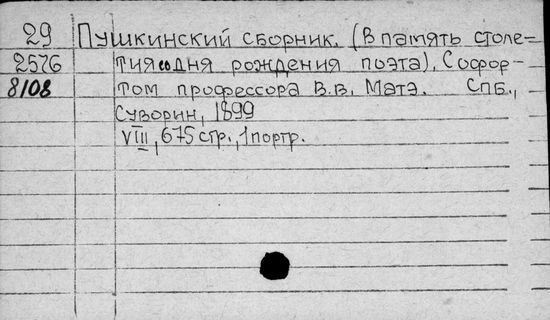 29 Пушкинский сборник. (В память столе-
2576 тия со дня рождения поэта). С офор-
8108 том профессора В.В. Матэ. Спб.,
Суворин, 1899
VIII, 675 стр., 1 портр.